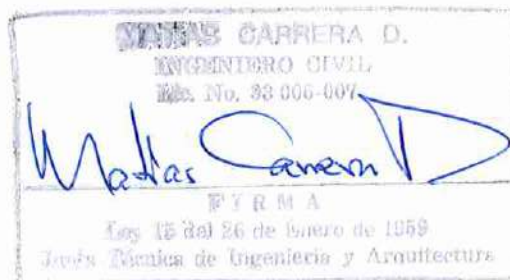 MATIAS CARRERA D.
INGENIERO CIVIL
No. 83-006-007
Matias Carrera D
FIRMA
Ley 15 del 26 de Enero de 1959
Junta Técnica de Ingeniería y Arquitectura